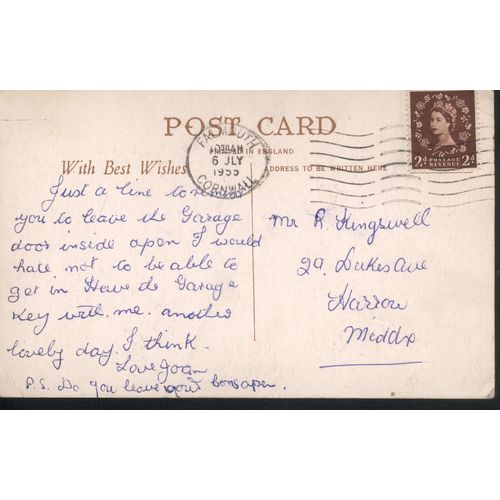 POST CARD
PRINTED IN ENGLAND
With Best Wishes
ADDRESS TO BE WRITTEN HERE
FALMOUTH
10 30 AM
6 JLY
1955
CORNWALL
2d POSTAGE REVENUE 2d
Just a line to
you to leave the Garage
door inside open I would
hate not to be able to
get in Have the Garage
Key with me. another
lovely day. I think.
Love Joan
P.S. Do you leave your open.
Mr R. Kingswell
29. Dukes Ave
Harrow
Middx